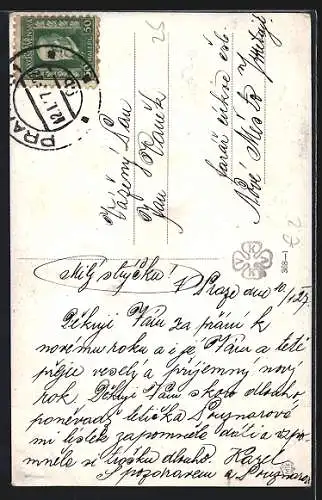 50
PRAHA
12.I.
Vážený Pan
Jan
farář církve čsl.
Nové Město n/Metují
368-1
Milý strýčku!
V Praze dne 10/1 27.
Děkuji Vám za přání k
novému roku a i já Vám a tetě
přeji veselý a příjemný nový
rok. Děkuji Vám skoro dlouho,
poněvadž tetička
mi lístek zapomněla dáti a vzpo-
mněla si trošku dlouho. Karel
S pozdravem a